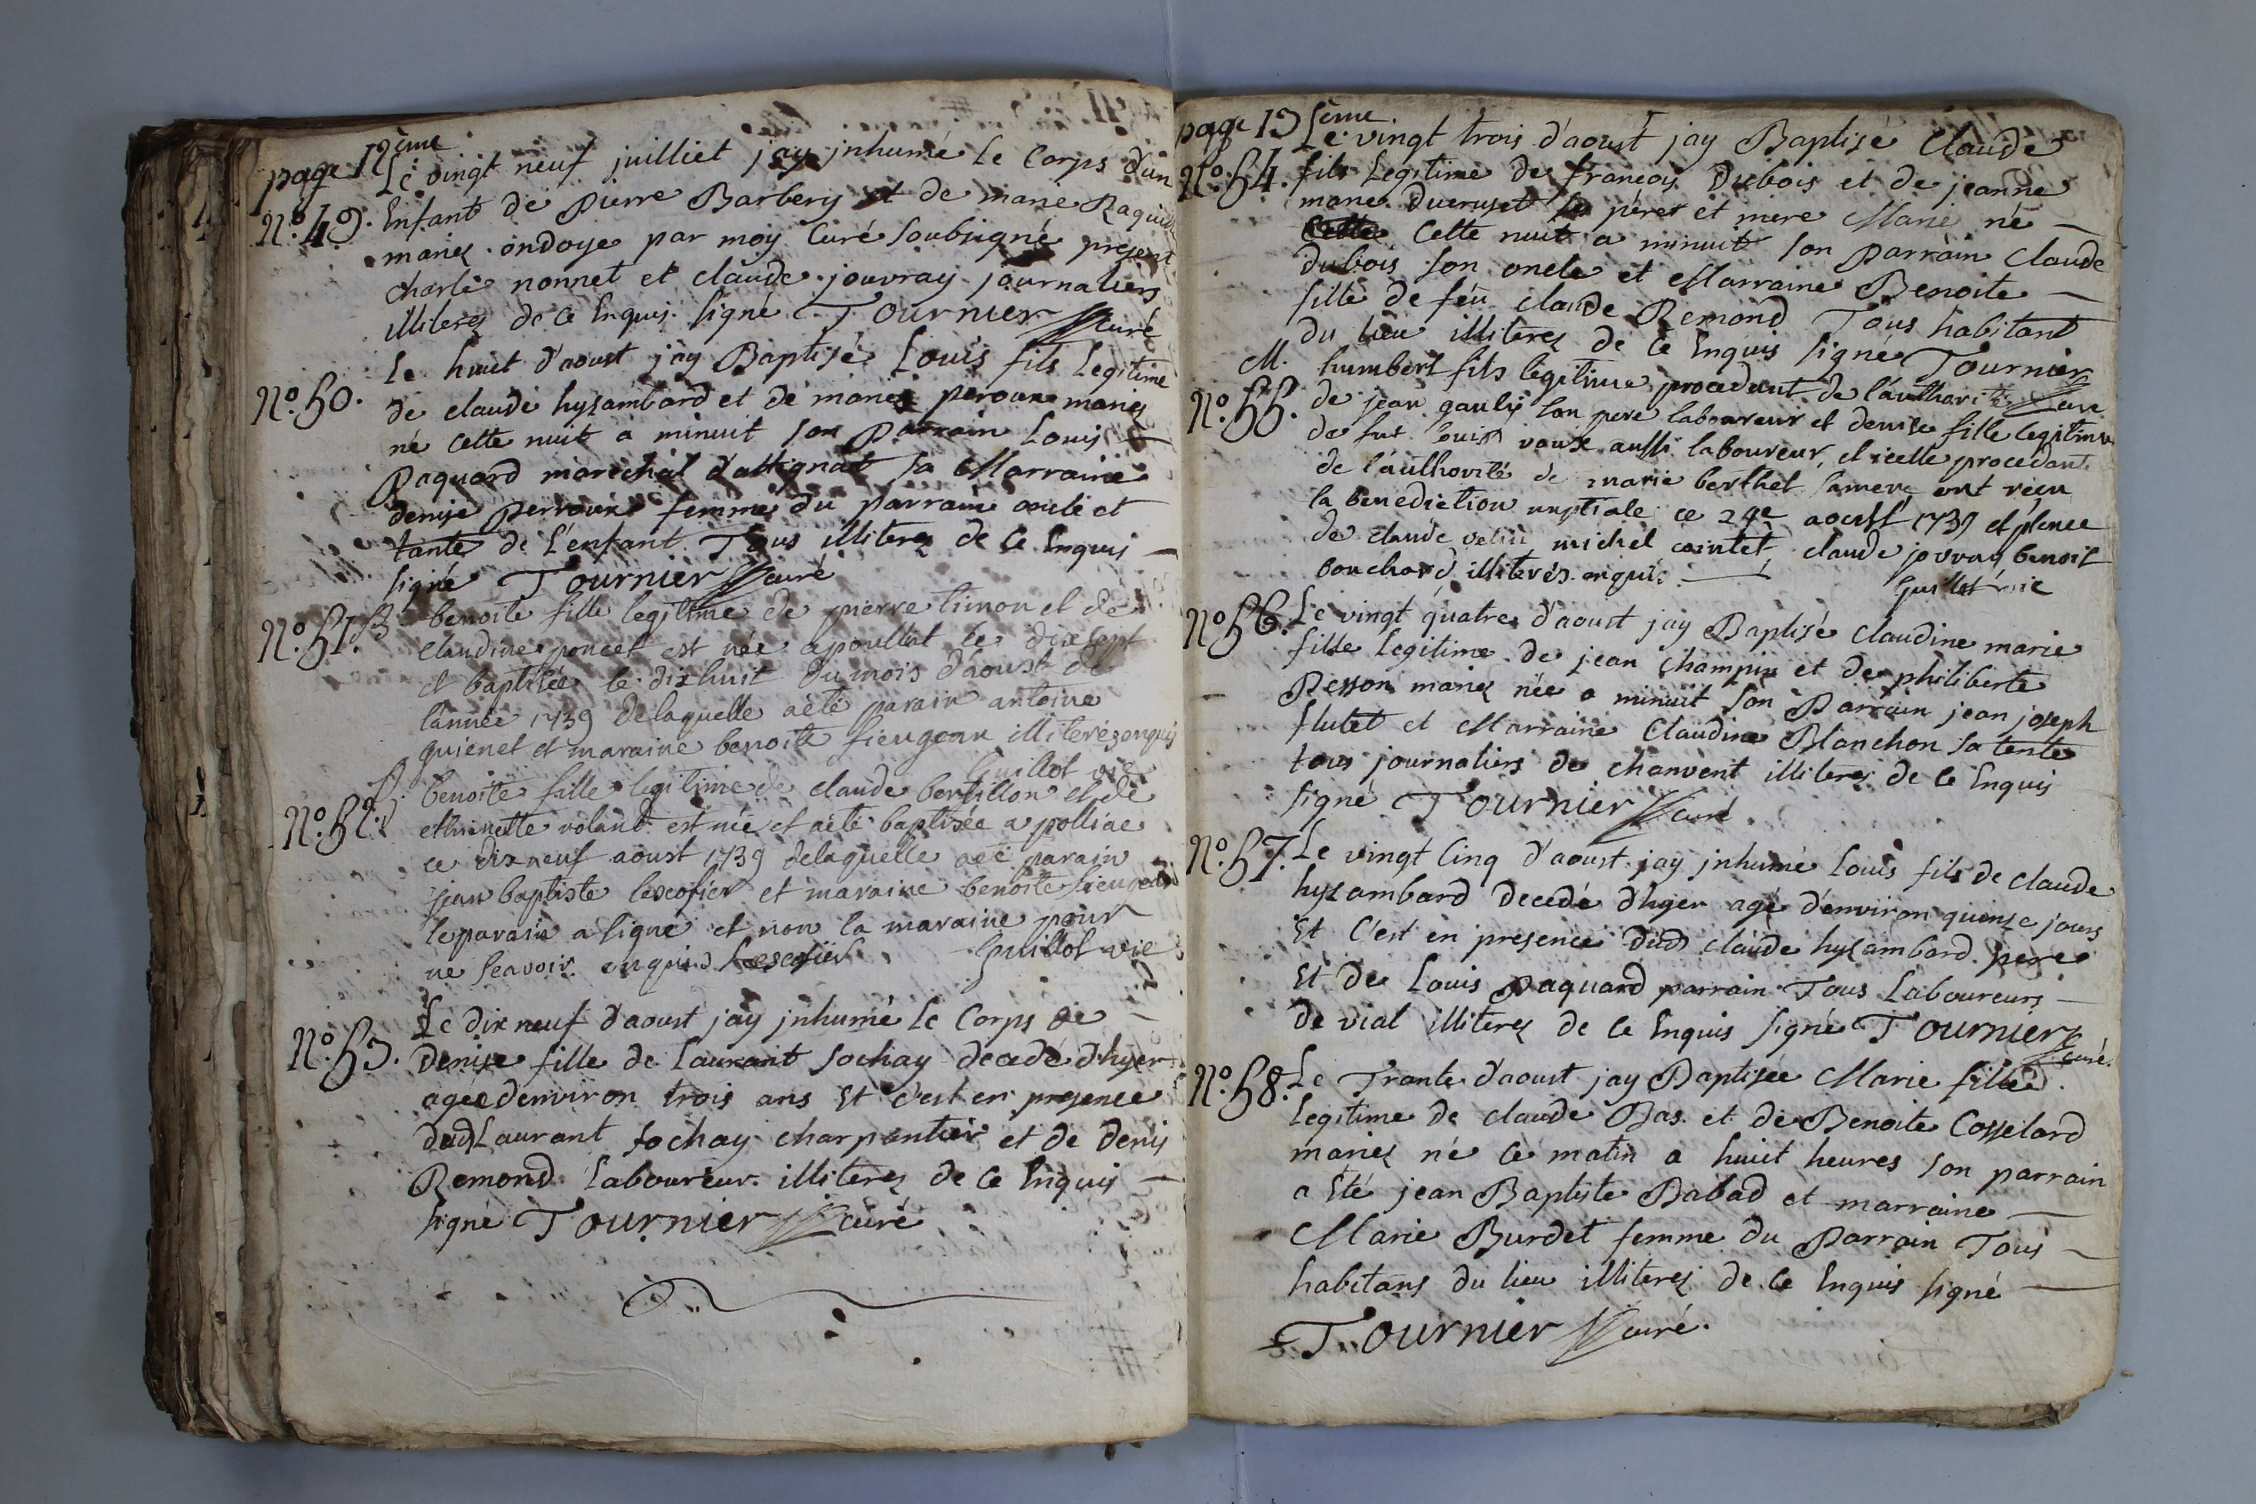 page 12ème
Le vingt neuf juilliet jay jnhumé le Corps d'un
N.o 49. Enfant de Pierre Barbery et de marie Raquin
mariez ondoye par moy Curé soubsigné present
charle nonnet et claude jouvray journaliers
illiterez de ce Enquis signé Tournier curé
N.o 50. Le huict d'aoust jay Baptisé Louis fils Legitime
de claude hyzambard et de marie peroux mariez
né cette nuit a minuit son Parrain Louis
Paquard maréchal d'attignat sa Marraine
denise perroux femme du parrain oncle et
tante de L'enfant Tous illiterez de ce Enquis
signé Tournier curé
N.o 51. B benoite fille legitime de pierre timon et de
Claudine poncet est née a poullat le dix sept
et baptisée le dixhuit du mois d'aoust de
l'année 1739 delaquelle a été parain antoine
guienet et maraine benoite fieugean illiterez enquis
Guillot vic
N.o 52. B. benoite fille legitime de claude bertillon et de
ethienette volant est née et a été baptisée a polliac
ce dix neuf aoust 1739 delaquelle a été parain
jean baptiste lescofier et maraine benoite fieugean
le parain a signé et non la maraine pour
ne scavoir enquis Lescofier Guillot vic
N.o 53. Le dix neuf d'aoust jay jnhumé le Corps de
denise fille de Laurant sochay decedé d'hyer
agée d'environ trois ans Et c'est en presence
dud Laurant sochay charpentier et de denis
Remond Laboureur illiterez de ce Enquis
signé Tournier curé
page 13ème
Le vingt trois d'aoust jay Baptisé Claude
N.o 54. fils Legitime de francois Dubois et de jeanne
marie ducruset père et mere Marié né
Cette Cette nuit a minuit son Parrain Claude
Dubois son oncle et Marraine Benoite
fille de feu claude Remond Tous habitant
du lieu illiterez de ce Enquis signé Tournier
curé
M. humbert fils legitime procedant de l'authorité
N.o 55. de jean gauly son pere laboureur et denise fille legitime
de fut louis vaux aussi laboureur, et icelle procedant
de l'authorité de marie berthet sa mere ont reçu
la benediction nuptiale ce 24e aoust 1739 et plence
de claude velu michel cointet, claude jovray benoit
bouchard illiterés enquis
Guillot vic
N.o 56. Le vingt quatre d'aoust jay Baptisée claudine marie
fille Legitime de jean Champin et de philiberte
Pesson mariez née a minuit son Parrain jean joseph
flutet et Marraine Claudine Blanchon sa tente
tous journaliers de chanvent illiterez de ce Enquis
signé Tournier curé
N.o 57. Le vingt cinq d'aoust jay jnhumé Louis fils de claude
hyzambard decedé d'hyer agé d'environ quinze jours
Et C'est en presence dud claude hyzambard pere
Et de Louis Paquard parrain Tous Laboureurs
de vial illiterez de ce Enquis signé Tournier
curé.
N.o 58. Le Trante d'aoust jay Baptisée Marie fille
Legitime de claude Bas. et de Benoite Cosselard
mariez né ce matin a huict heures son parrain
a Eté jean Baptiste Babad et marraine
Marie Burdet femme du Parrain Tous
habitans du lieu illiterez de ce Enquis signé
Tournier curé.